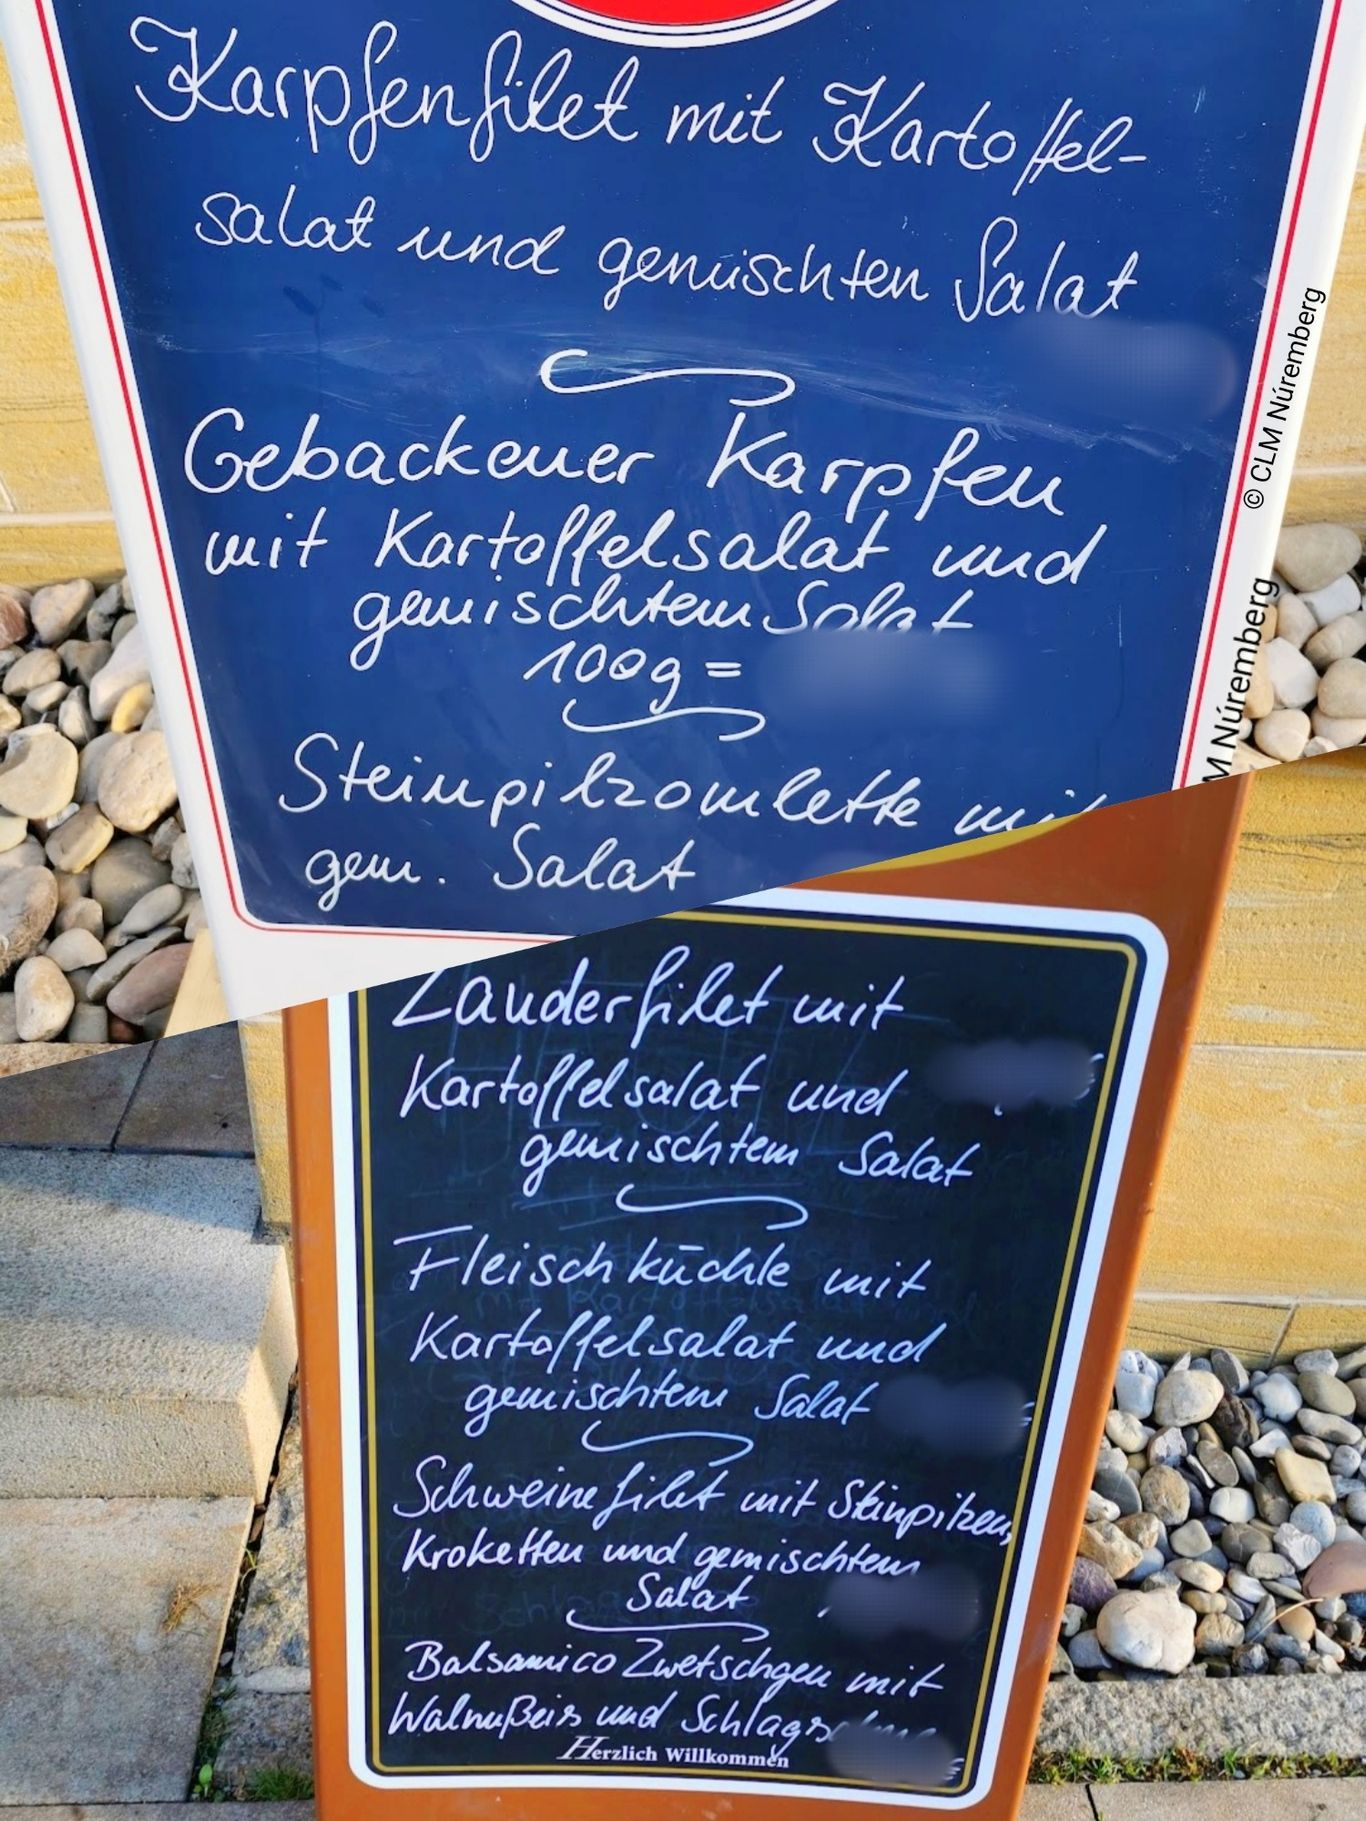 Karpfenfilet mit Kartoffel-
salat und gemischten Salat
Gebackener Karpfen
mit Kartoffelsalat und
gemischtem Salat
100g =
Steinpilzomlette mit
gem. Salat
© CLM Núremberg
M Núremberg
Zanderfilet mit
Kartoffelsalat und
gemischtem Salat
Fleischküchle mit
Kartoffelsalat und
gemischtem Salat
Schweinefilet mit Steinpilzen,
Kroketten und gemischtem
Salat
Balsamico Zwetschgen mit
Walnußeis und
Herzlich Willkommen